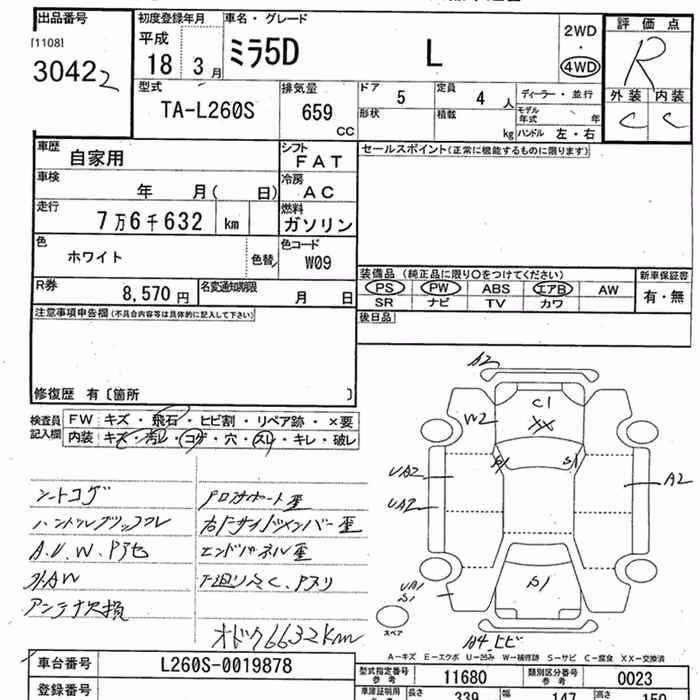 出品番号 初度登録年月 車名・グレード 2WD 評価点
[1108] 平成 ミラ5D L ・ R
30422 18 3月 4WD
型式 排気量 ドア 5 定員 4人 ディーラー・並行 外装 内装
TA-L260S 659 cc 形状 積載 kg モデル年式 年 C C
ハンドル 左・右
車歴 自家用 シフト FAT セールスポイント(正常に機能するものに限ります)
車検 年 月( 日) 冷房 AC
走行 7万6千632 km 燃料 ガソリン
色 ホワイト 色替 色コード W09
装備品 (純正品に限り○をつけてください) 新車保証書
R券 8,570円 名変通知期限 月 日 PS PW ABS エアB AW 有・無
SR ナビ TV カワ
注意事項申告欄(不具合内容等は具体的に記入して下さい) 後日品
修復歴 有〔箇所 〕
検査員記入欄 FW キズ・飛石・ヒビ割・リペア跡・×要
内装 キズ・汚レ・コゲ・穴・スレ・キレ・破レ
A2
C1
W2 XX
S1 S1
UA2 A2
UA2
シートコゲ
ハンドルグリップスレ
A.U.W.Pアセ
外AW
アンテナ欠損
右Fサイドメンバー歪
エンドパネル歪
下廻りサビ、Pスリ
オドク6632km
UA1
S1 S1
スペア
A4.ヒビ
A-キズ E-エクボ U-凹み W-補修跡 S-サビ C-腐食 XX-交換済
車台番号 L260S-0019878 型式指定番号 参考 11680 類別区分番号 参考 0023
登録番号 車庫証明用 長さ 339 幅 147 高さ 150